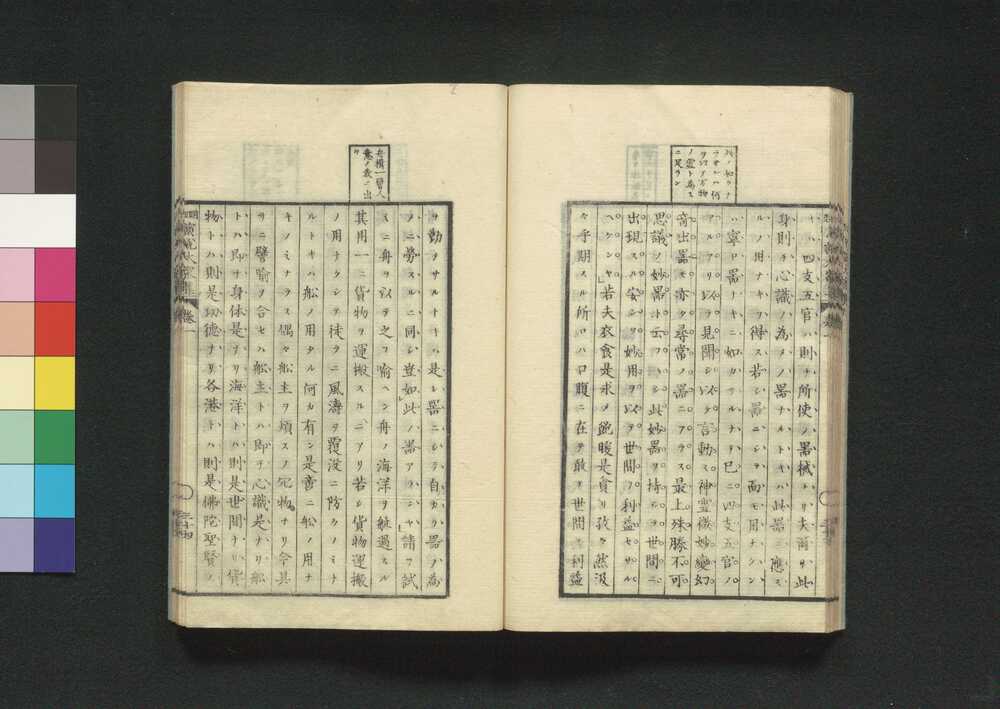 ノ靈ト爲ス
ニ足ラン
ハ四支五官ハ則チ所使ノ器械トナリ夫爾リ此
身則チ心識ノ為メノ器ナルトキハ此器ニ應ス
ルノ用ナキヲ得ス若シ器ニシテ而モ用ナクン
ハ寧ロ器ナキニ如カサルナリ已ニ四支五官ノ
アルアリ以テ見聞シ以テ言動ス神靈微妙變幻
奇出器モ亦タ尋常ノ器ニアラス最上殊勝不可
思議ノ妙器ト云フヘシ此妙器ヲ持シテ世間ニ
出現スル安シソ妙用ヲ以テ世間ヲ利益セサル
ヘケンヤ」若夫衣食是求メ飽暖是貪リ孜々然汲
々乎期スル所ロハ口腹ニ在テ敢テ世間ヲ利益
舟橫一譬人
意ノ表ニ出
ツ
ヲ勤メサルトキハ是レ器ニシテ自カラ器ノ為
メニ勞スルニ同シ豈如此ノ器アランヤ」請フ試
スニ舟ヲ以テ之ヲ喩ヘン舟ノ海洋ヲ航過スル
其用一ニ貨物ヲ運搬スルニアリ若シ貨物運搬
ノ用ナクシテ徒ラニ風濤ヲ覆没ニ防クノミト
ルトキハ船ノ用タル何カ有ン是啻ニ船ノ用ナ
キノミナラス偶々船主ヲ煩スノ冗物ナリ今其
ヲニ譬喩ヲ合セハ船主トハ即チ心識是ナリ船
トハ即チ身体是ナリ海洋トハ則是世間ナリ貨
物トハ則是功德ナリ各港トハ則是佛陀聖賢ノ
卷一
三十四